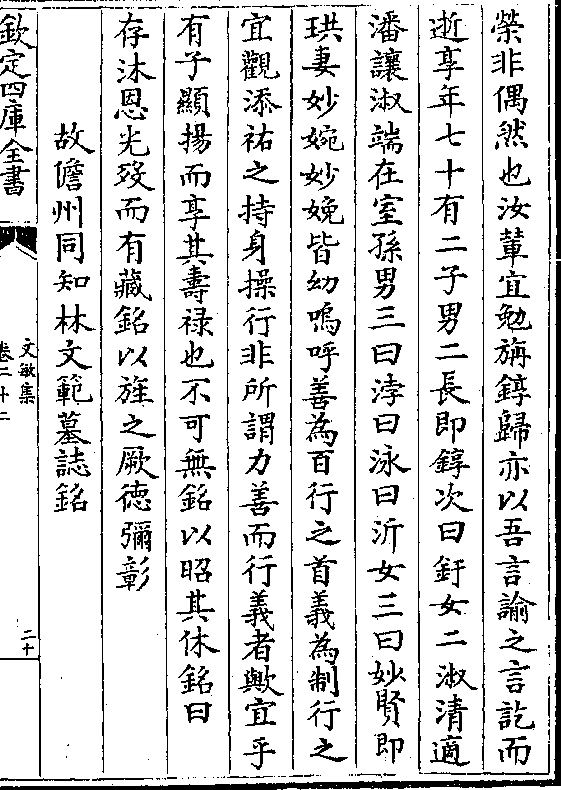 榮非偶然也汝軰宜勉旃錞歸亦以吾言諭之言訖而
逝享年七十有二子男二長即錞次曰釪女二淑清適
潘讓淑端在室孫男三曰浡曰泳曰沂女三曰妙賢即
珙妻妙婉妙娩皆幼嗚呼善為百行之首義為制行之
宜觀添祐之持身操行非所謂力善而行義者歟宜乎
有子顯揚而享其壽禄也不可無銘以昭其休銘曰
存沐恩光歿而有藏銘以旌之厥徳彌彰
故儋州同知林文範墓誌銘
欽定四庫全書
文敏集
卷二十二
二十